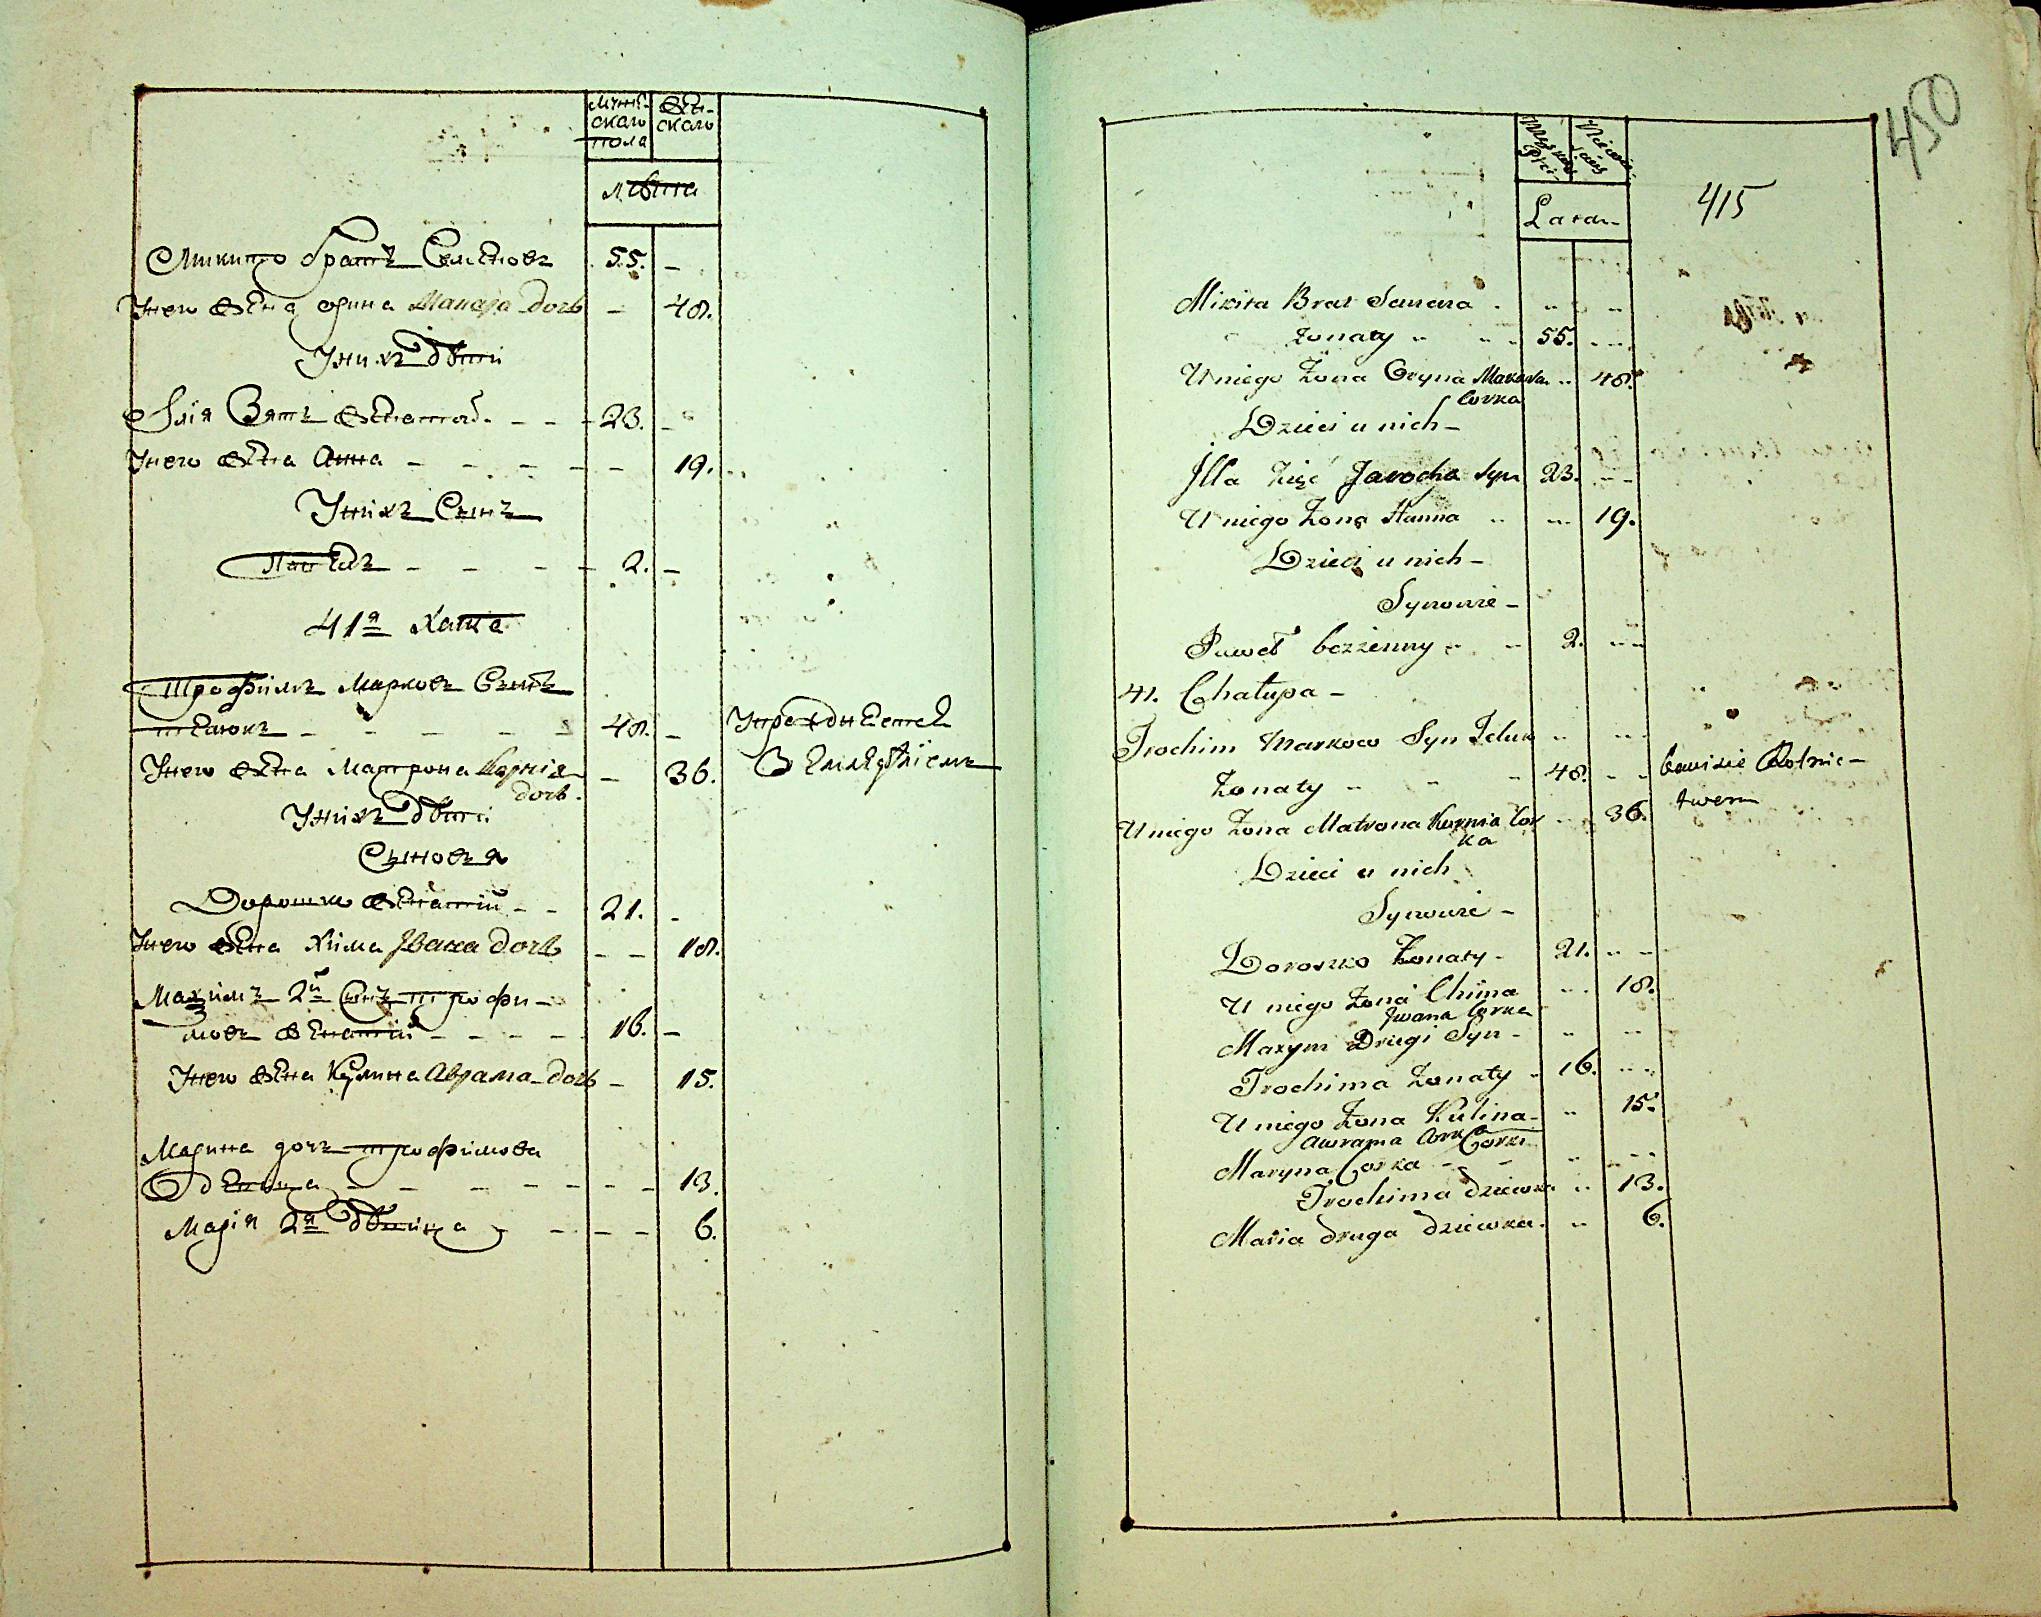 Мужескаго пола
Женскаго
Лѣта
Микито братъ Семеновъ 55. –
У него жена Орина Макара дочь – 48.
У нихъ дѣти
Илія Зять женатой – – – 23. –
У него жена Анна – – – – – 19.
У нихъ Сынъ
Павелъ – – – – 2. –
41я Хата
Трофимъ Марковъ Сынъ
– – – – – 48. –
Упраждняется
Земледѣліемъ
У него жена Матрона Корнія – 36.
дочь.
У нихъ дѣти
Сыновья
Дорошко женатій – – 21. –
У него жена Хима Ивана дочь – – 18.
Махимъ 2й Сынъ трофи–
мовъ женатій – – – – – 16. –
У него жена Кулина Аврама дочь – 15.
Марина дочь трофимова
Дѣвица – – – – – – – – 13.
Марія 2я дѣвица – – – – 6.
450
415
Męskiey Płci
Niewieściey
Lata
Mikita Brat Semena
żonaty 55.
U niego żona Oryna Makara 48.
Corka
Dzieci u nich –
Illa zięć Jarocha syn 23.
U niego żona Hanna 19.
Dzieci u nich –
Synowie –
Paweł bezżenny 2.
41. Chałupa –
Trochim Markow Syn
żonaty 48.
bawi sie Rolnic–
twem
U niego żona Matrona Kornia Cor 36.
ka
Dzieci u nich
Synowie –
Doroszko żonaty – 21.
U niego żona Chima 18.
Jwana Corka
Maxym Drugi Syn –
Trochima żonaty 16.
U niego żona Kulina – 15.
Awrama Corka
Maryna Corka –
Trochima dziewka 13.
Maria druga dziewka 6.